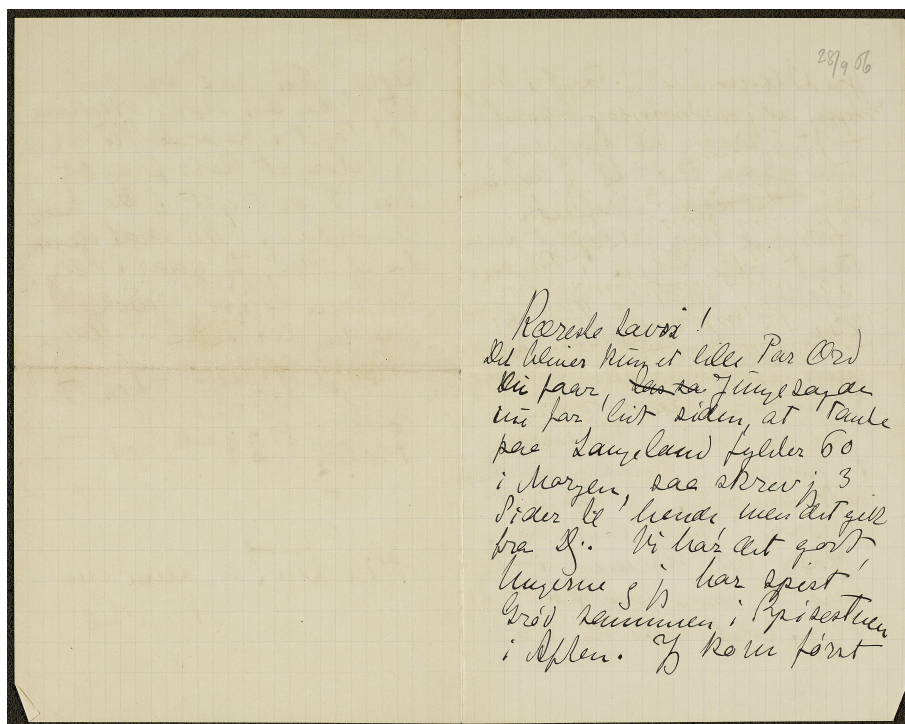 28/9 06
Kæreste Lavsi!
Det bliver kun et lille Par Ord
Du faar, Junge sagde
nu for lidt siden, at Tante
paa Langeland fylder 60
i Morgen, saa skrev j 3
Sider til hende, men det gik
fra Dj. Vi har det godt,
Ungerne og jg har spist
Grød sammen i Spisestuen
i Aften. Jg kom først